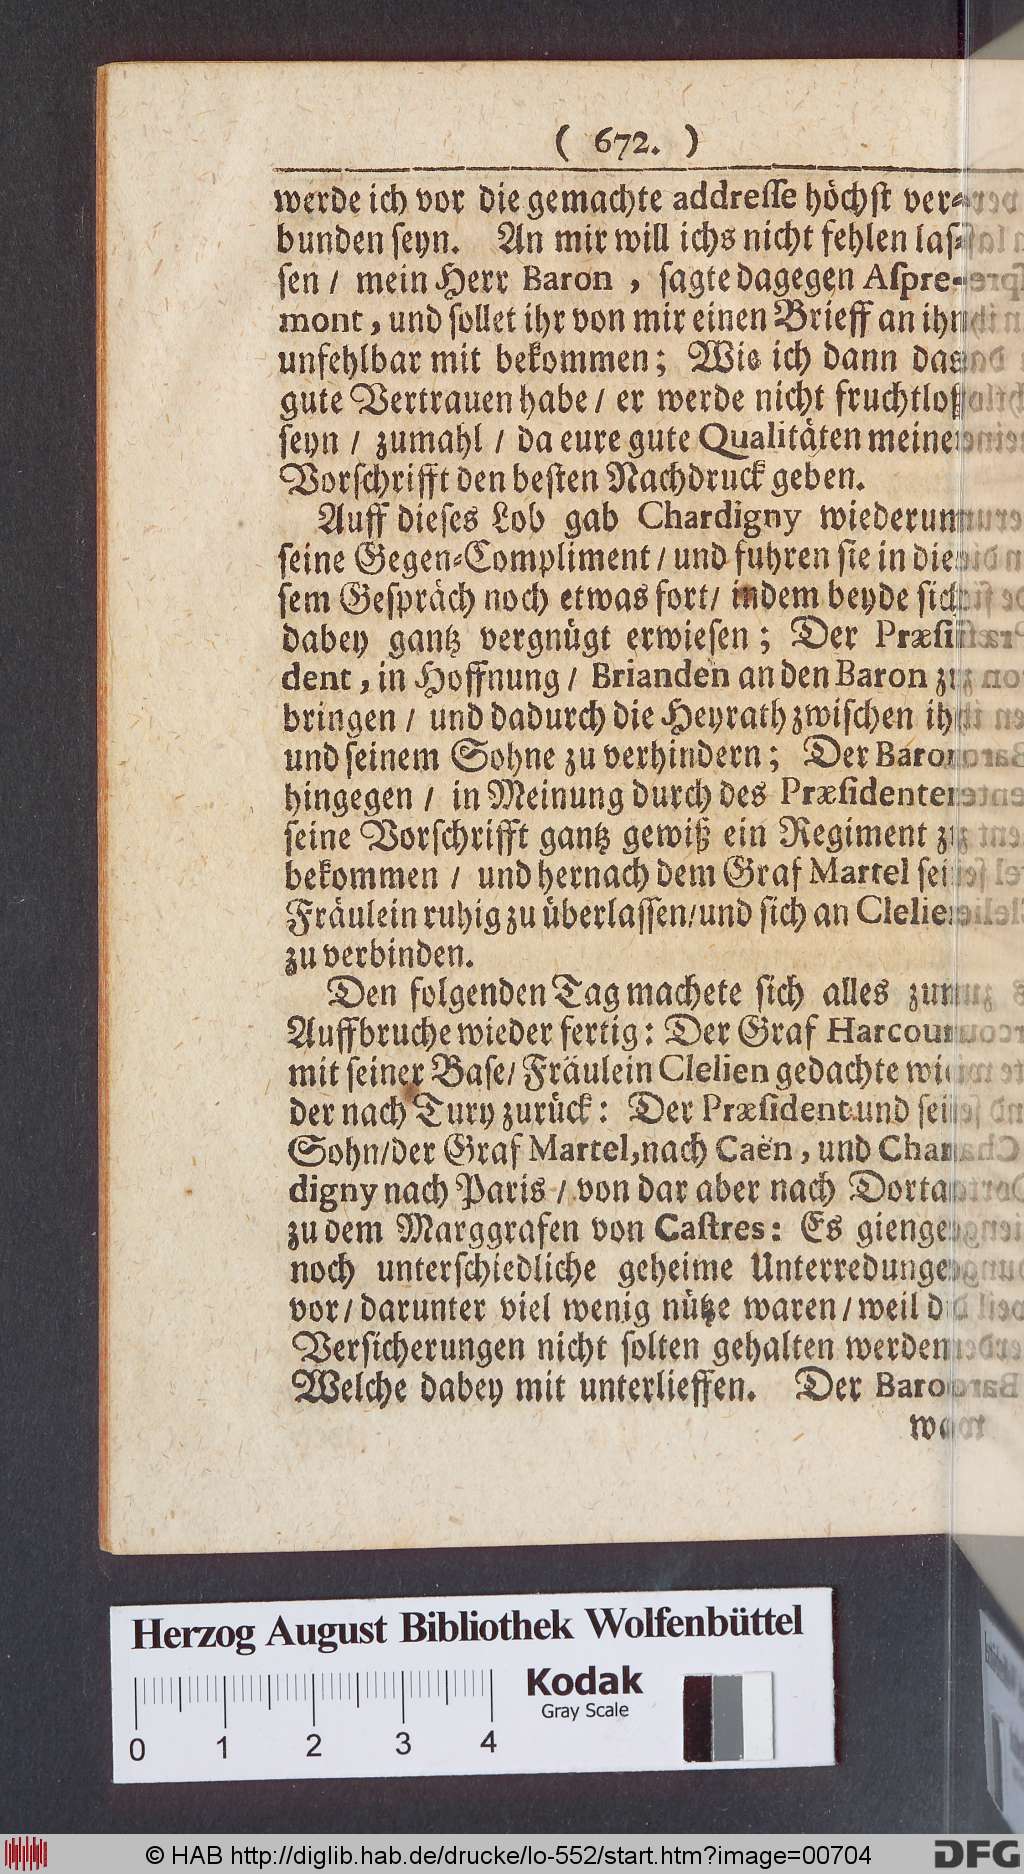 ( 672. )
werde ich vor die gemachte addreſſe höchſt ver-
bunden ſeyn. An mir will ichs nicht fehlen laſ-
ſen / mein Herr Baron , ſagte dagegen Aſpre-
mont, und ſollet ihr von mir einen Brieff an ihn
unfehlbar mit bekommen; Wie ich dann das
gute Vertrauen habe / er werde nicht fruchtloß
ſeyn / zumahl / da eure gute Qualitäten meiner
Vorſchrifft den beſten Nachdruck geben.
Auff dieſes Lob gab Chardigny wiederum
ſeine Gegen-Compliment / und fuhren ſie in die-
ſem Geſpräch noch etwas fort / indem beyde ſich
dabey gantz vergnügt erwieſen ; Der Præſi-
dent, in Hoffnung / Brianden an den Baron zu
bringen / und dadurch die Heyrath zwiſchen ihr
und ſeinem Sohne zu verhindern ; Der Baron
hingegen / in Meinung durch des Præſidenten
ſeine Vorſchrifft gantz gewiß ein Regiment zu
bekommen / und hernach dem Graf Martel ſein
Fräulein ruhig zu überlaſſen / und ſich an Clelien
zu verbinden.
Den folgenden Tag machete ſich alles zum
Auffbruche wieder fertig : Der Graf Harcourt
mit ſeiner Baſe / Fräulein Clelien gedachte wie-
der nach Tury zurück : Der Præſident und ſein
Sohn / der Graf Martel, nach Caën, und Char-
digny nach Paris / von dar aber nach Dortan
zu dem Marggrafen von Caſtres: Es giengen
noch unterſchiedliche geheime Unterredungen
vor / darunter viel wenig nütze waren / weil die
Verſicherungen nicht ſolten gehalten werden
Welche dabey mit unterlieffen. Der Baron
Herzog August Bibliothek Wolfenbüttel
Kodak
Gray Scale
0 1 2 3 4
© HAB http://diglib.hab.de/drucke/lo-552/start.htm?image=00704
DFG